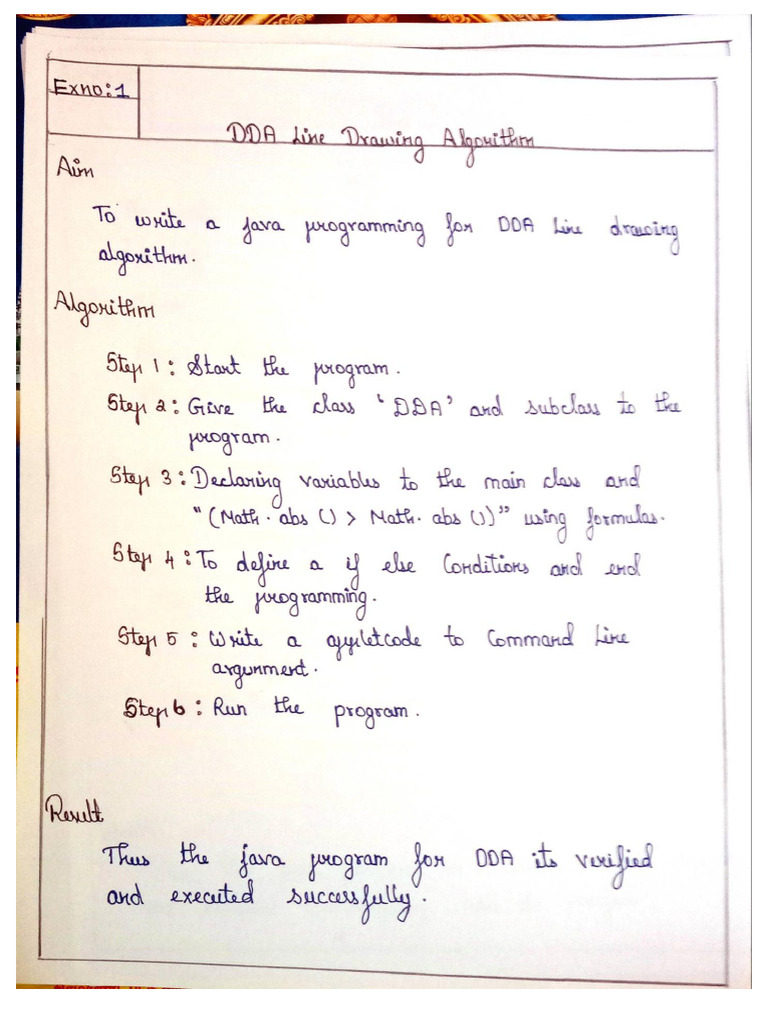 Exno:1
DDA Line Drawing Algorithm
Aim
To write a java programming for DDA Line drawing
algorithm.
Algorithm
Step 1: Start the program.
Step 2: Give the class 'DDA' and subclass to the
program.
Step 3: Declaring variables to the main class and
"(Math. abs () > Math. abs ())" using formulas.
Step 4: To define a if else Conditions and end
the programming.
Step 5: Write a appletcode to Command Line
argunment.
Step 6: Run the program.
Result
Thus the java program for DDA its verified
and executed successfully.